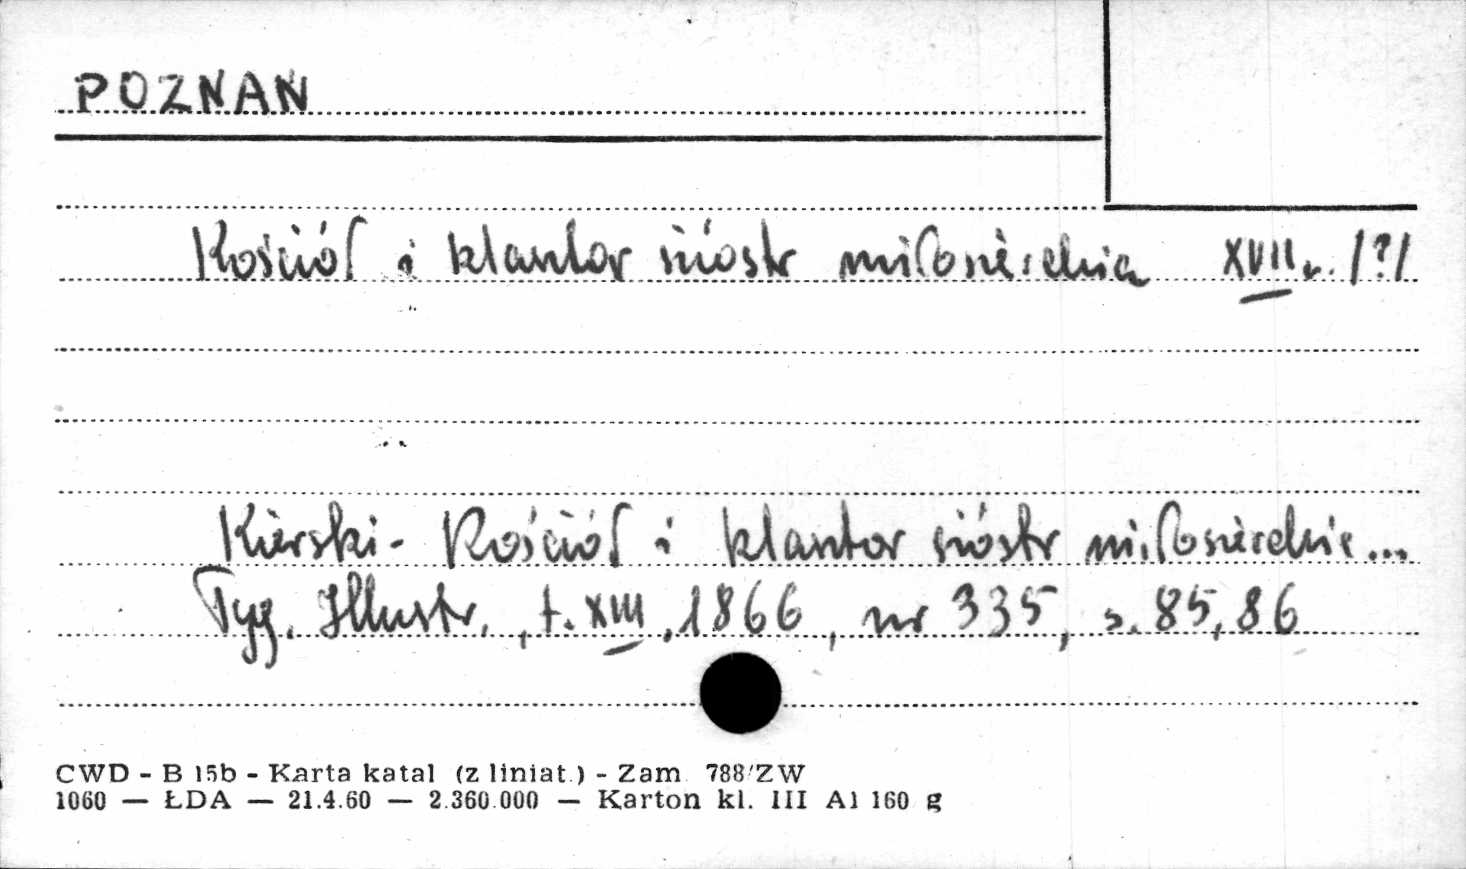 POZNAŃ
Kościół i klasztor sióstr miłosierdzia XVII w. /?/
Kierski - Kościół i klasztor sióstr miłosierdzia...
Tyg. Illustr., t. XIII, 1866, nr 335, s. 85,86
CWD - B 15b - Karta katal (z liniat.) - Zam. 788/ZW
1060 — ŁDA — 21.4.60 — 2.360.000 — Karton kl. III A1 160 g